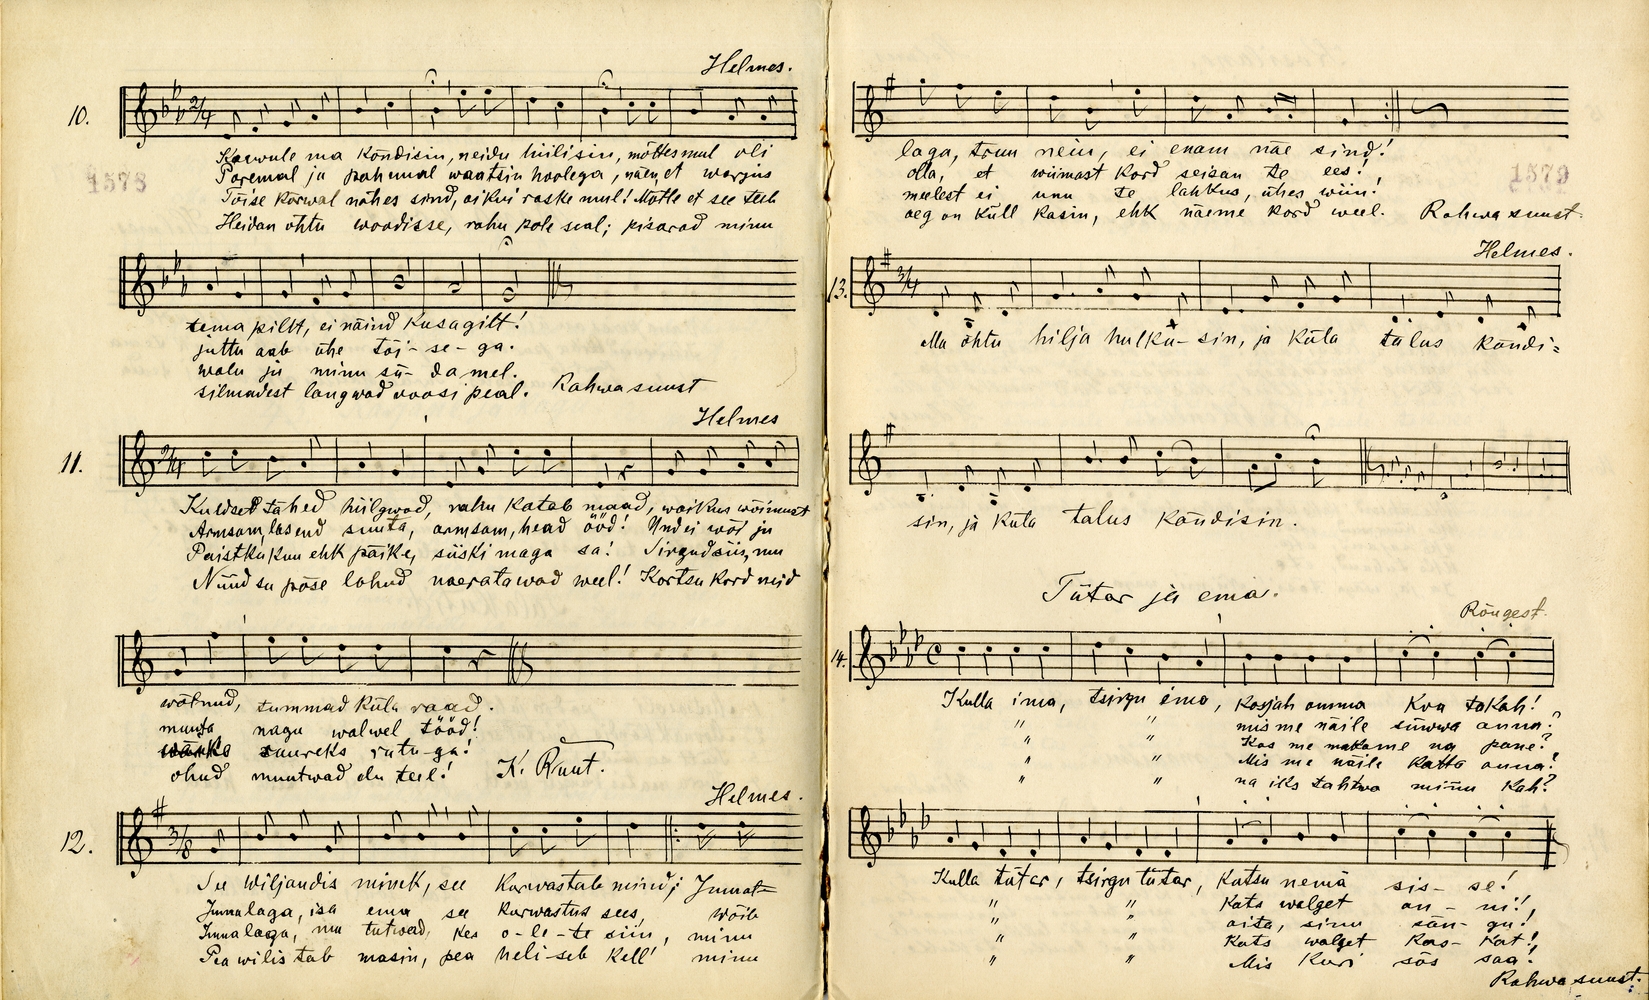 Helmes.
10.
2/4
Karwule ma kõndisin, neidu hüilisin, mõttes mul oli
1573
Paremal ja pahemal waatsin hoolega, näen, et warjus
Tõise kõrwal nähes sind, oi kui raske mul! Mõtle et see teeb
Heidan õhtu woodisse, rahu pole seal; pisarad minu
tema pilt, ei näind kusagilt!
juttu aab ühe tõi-se-ga.
walu ju minu sü-damel.
silmadest langwad woosi peal. Rahwa suust
Helmes
11.
2/4
Kuldsed tähed hiilgwad, rahu katab maad, waikus wõimust
Armsam, lasend suuta, armsam, head ööd! Und ei wõi ju
Paistku kuu ehk päike, siiski maga sa! Sirgud siis, mu
Nüüd su põse lohud naeratawad weel! Kortsu kord neid
wõtnud, tummad küla raad.
muuta nagu walwel tööd!
suureks rutu-ga!
ohud muutwad elu teel! K. Ruut.
Helmes.
12.
3/8
See Wiljandis minek, see kurwastab mind; Jumal-
Jumalaga, isa ema see kurwastus sees, wõib
Jumalaga, mu tutwad, kes o-le-te siin, minu
Pea wilistab masin, pea heli-seb kell' minu
laga, truu neiu, ei enam näe sind!
olla, et wiimast kord seisan te ees!
1579
meelest ei unu te lahkus, ühes wiin!
aeg on küll kasin, ehk näeme kord weel. Rahwa suust.
Helmes.
13.
3/4
Ma õhtu hilja hulku-sin, ja küla talus kõndi-
sin, ja küla talus kõndisin.
Tütar ja ema.
Rõngest.
14.
Kulla ima, tsirgu imo, kosjah omma kva tokah!
" " mis me näile süwwa anna?
" " Kos me makame na pane?
" " Mis me näile katta anna?
" " na iks tahtwa minu kah?
Kulla tütar, tsirgu tütar, kutsu nemä sis-se!
" " kats walget on-ni!,
" " aita, sinu sän-gu!,
" " kats walget kas-kat!,
" " Mis kuri sõs saa?
Rahwa suust.